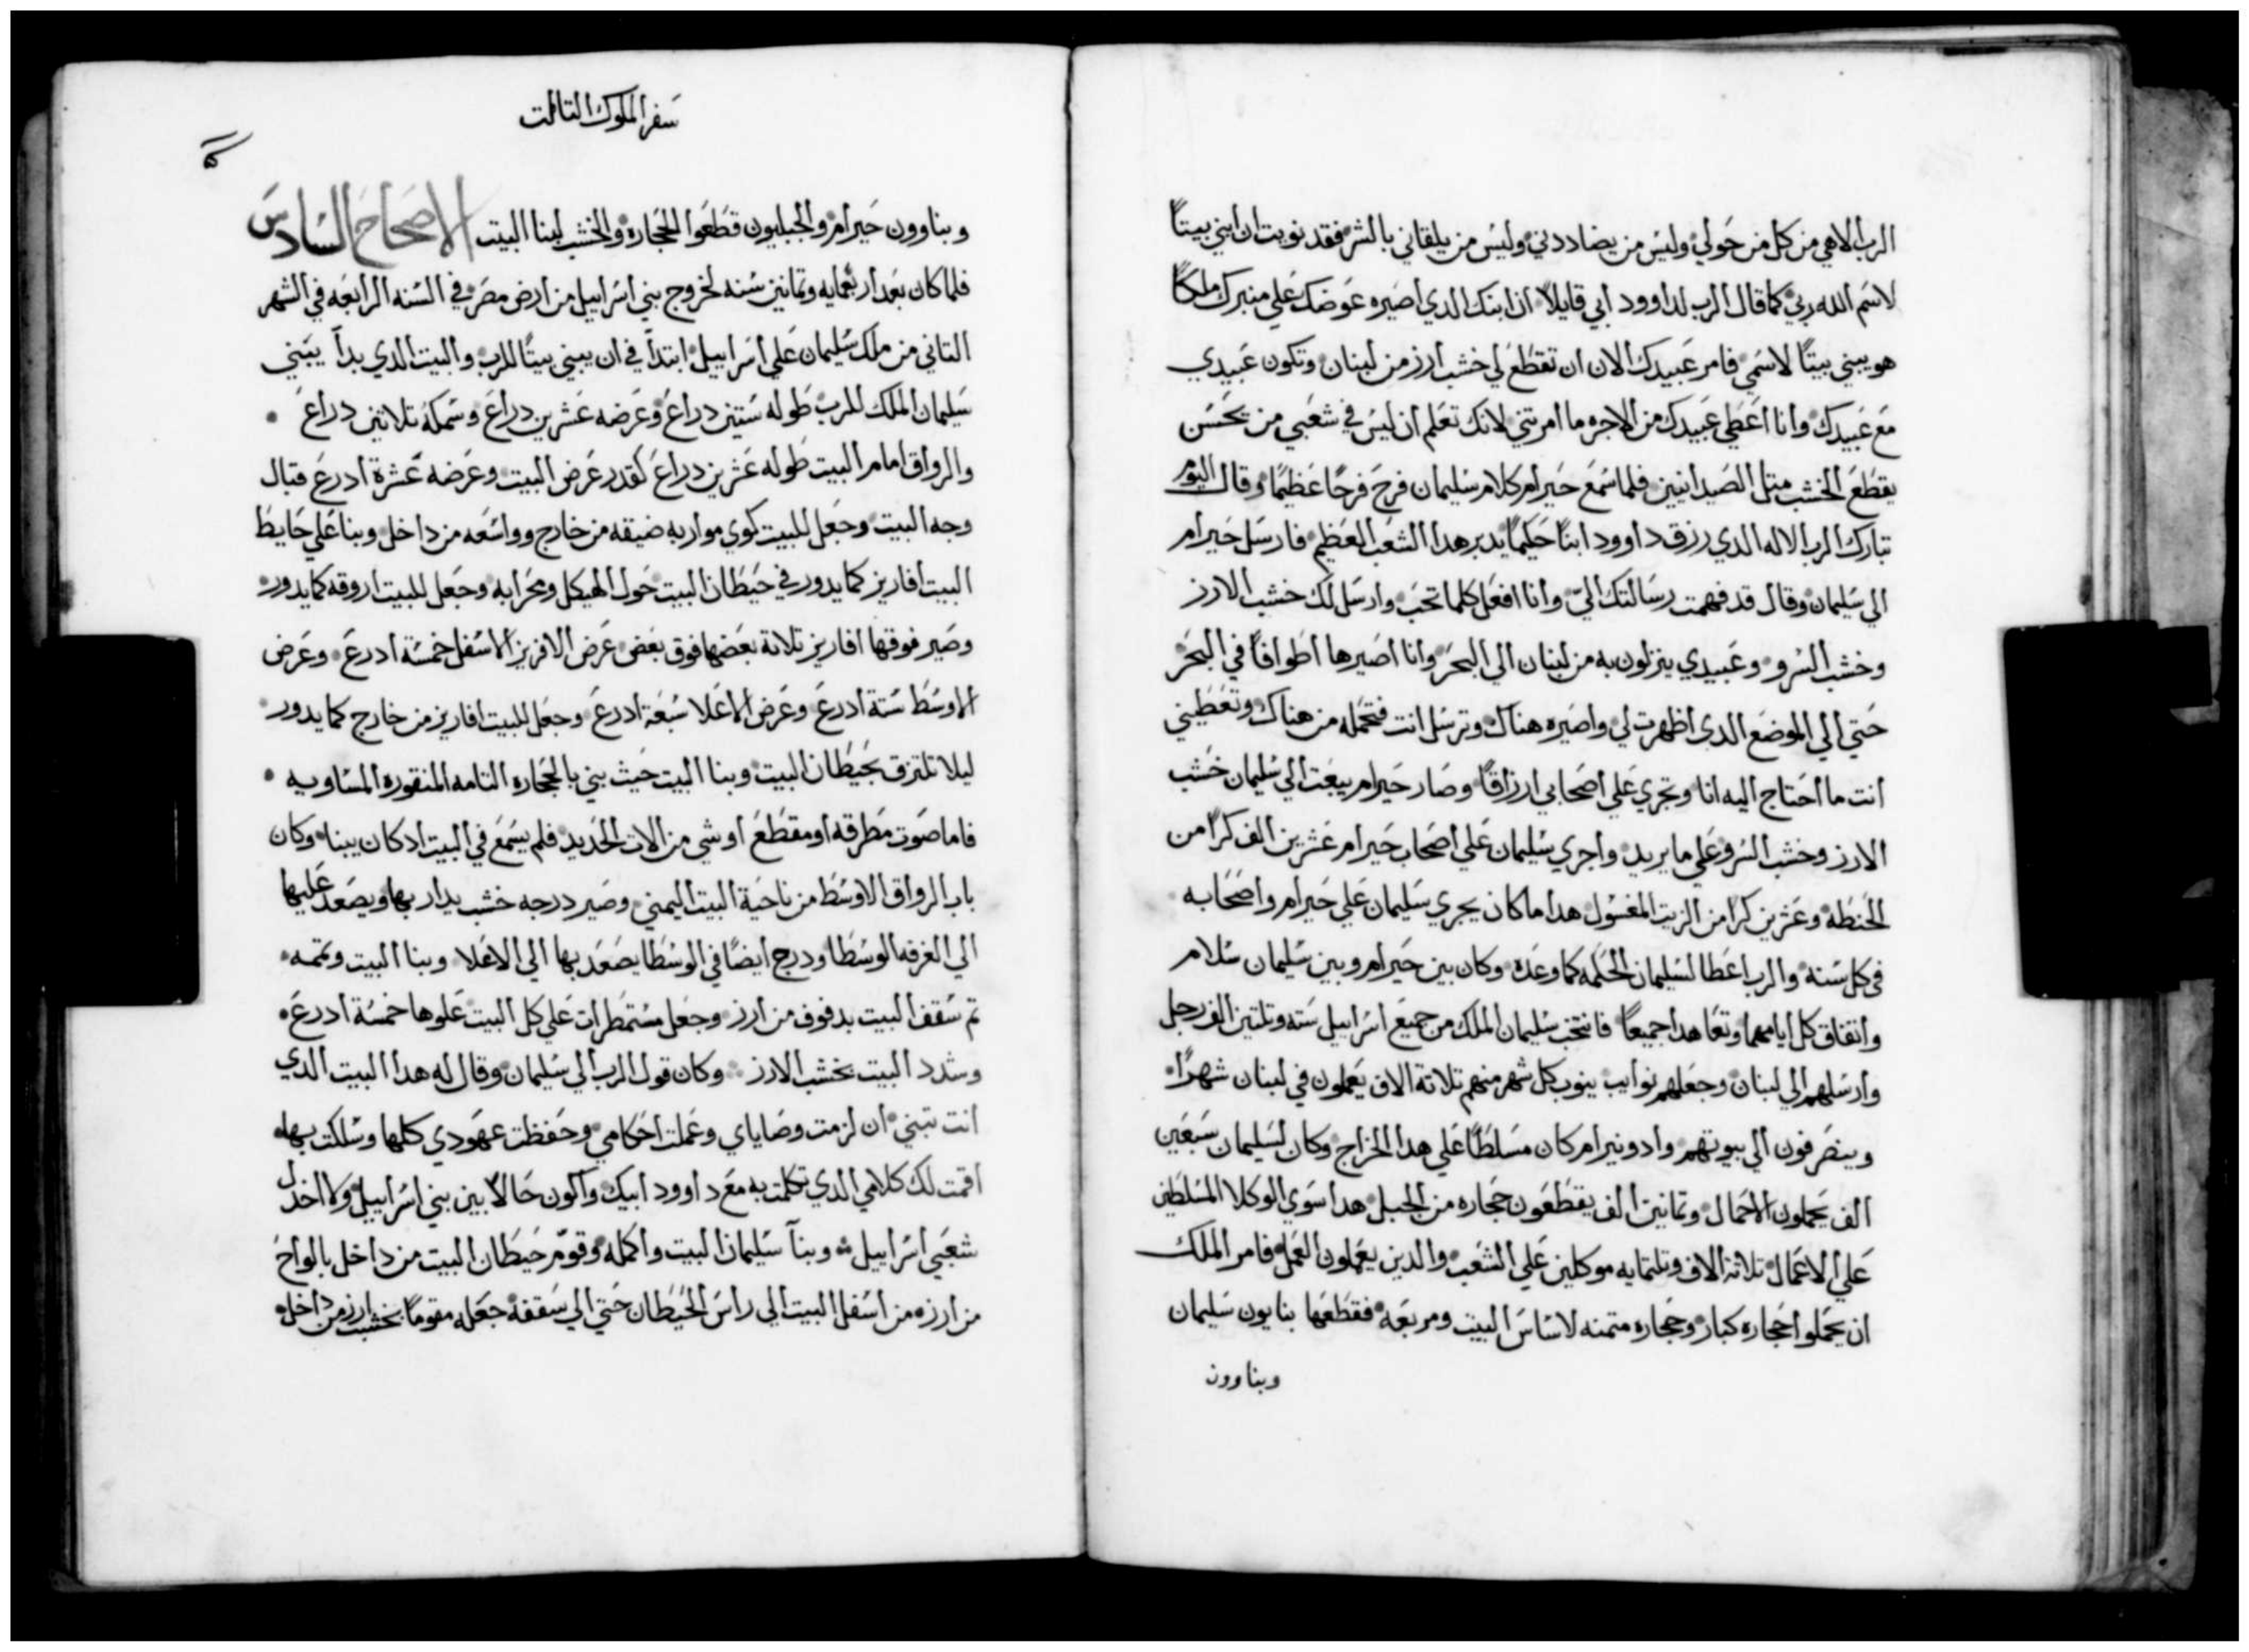 الرب الاهي من كل من حولي وليس من يضاددني وليس من يلقاني بالشر فقد نويت ان ابني بيتاً
لاسم الله ربي كما قال الرب لداوود ابي قايلاً ان ابنك الدي اصيره عوضك علي منبرك ملكاً
هو يبني بيتاً لاسمي فامر عبيدك الان ان تقطع لي خشب ارز من لبنان وتكون عبيدي
مع عبيدك وانا اعطي عبيدك من الاجره ما امرتني لانك تعلم ان ليس في شعبي من يحسن
يقطع الخشب متل الصيدانيين فلما سمع حيرام كلام سليمان فرح فرحاً عظيماً وقال اليوم
تبارك الرب الاله الدي رزق داوود ابناً حكيماً يدبر هدا الشعب العظيم فارسل حيرام
الي سليمان وقال قد فهمت رسالتك اليّ وانا افعل كلما تحب وارسل لك خشب الارز
وخشب السرو وعبيدي ينزلون به من لبنان الي البحر وانا اصيرها اطوافاً في البحر
حتي الي الموضع الدي اظهرت لي واصيره هناك وترسل انت فتحمله من هناك وتعطيني
انت ما احتاج اليه انا وتجري علي اصحابي ارزاقاً وصار حيرام يبعت الي سليمان خشب
الارز وخشب السرو علي ما يريد واجري سليمان علي اصحاب حيرام عشرين الف كراً من
الحنطه وعشرين كراً من الزيت المغسول هدا ما كان يجري سليمان علي حيرام واصحابه
في كل سنه والرب اعطا لسليمان الحكمه كما وعده وكان بين حيرام وبين سليمان سلام
واتفاق كل ايامهما وتعاهدا جميعاً فانتخب سليمان الملك من جميع اسراييل سته وتلتين الف رجل
وارسلهم الي لبنان وجعلهم نوايب ينوب كل شهر منهم تلاتة الاف يعملون في لبنان شهراً
وينصرفون الي بيوتهم وادونيرام كان مسلطاً علي هدا الخراج وكان لسليمان سبعين
الف يحملون الاحمال وتمانين الف يقطعون حجاره من الجبل هدا سوي الوكلا المسلطين
علي الاعمال تلاتة الاف وتلتمايه موكلين علي الشعب والدين يعملون العمل فامر الملك
ان يحملوا حجاره كبار وحجاره متمنه لاساس البيت ومربعه فقطعها بنايون سليمان
وبناوون
سفر الملوك التالت
وبناوون حيرام والجبليون قطعوا الحجاره والخشب لبنا البيت الاصحاح السادس
فلما كان بعد اربعمايه وتمانين سنه لخروج بني اسراييل من ارض مصر في السنه الرابعه في الشهر
التاني من ملك سليمان علي اسراييل ابتدأ في ان يبني بيتاً للرب والبيت الدي بدأ يبني
سليمان الملك للرب طوله ستين دراع وعرضه عشرين دراع وسمكه تلاتين دراع
والرواق امام البيت طوله عشرين دراع كقدر عرض البيت وعرضه عشرة ادرع قبال
وجه البيت وجعل للبيت كوي مواربه ضيقه من خارج وواسعه من داخل وبنا علي حايط
البيت افاريز كما يدور في حيطان البيت حول الهيكل ومحرابه وجعل للبيت اروقه كما يدور
وصير فوقها افاريز تلاتة بعضها فوق بعض عرض الافريز الاسفل خمسة ادرع وعرض
الاوسط ستة ادرع وعرض الاعلا سبعة ادرع وجعل للبيت افاريز من خارج كما يدور
ليلا تلتزق بحيطان البيت وبنا البيت حيث بني بالحجاره التامه المنقوره المساويه
فاما صوت مطرقه او مقطع او شي من الات الحديد فلم يسمع في البيت ادكان يبنا وكان
باب الرواق الاوسط من ناحية البيت اليمني وصير درجه خشب يدار بها ويصعد عليها
الي الغرفه الوسطا ودرج ايضاً في الوسطا يصعد بها الي الاعلا وبنا البيت وتممه
تم سقف البيت بدفوف من ارز وجعل مستمطرات علي كل البيت علوها خمسة ادرع
وشدد البيت بخشب الارز وكان قول الرب الي سليمان وقال له هدا البيت الدي
انت تبني ان لزمت وصاياي وعملت احكامي وحفظت عهودي كلها وسلكت بها
اقمت لك كلامي الدي تكلمت به مع داوود ابيك واكون حالاً بين بني اسراييل ولا اخدل
شعبي اسراييل وبنآ سليمان البيت واكمله وقوّم حيطان البيت من داخل بالواح
من ارزه من اسفل البيت الي راس الحيطان حتي الي سقفه جعله مقوماً بخشب ارز من داخل